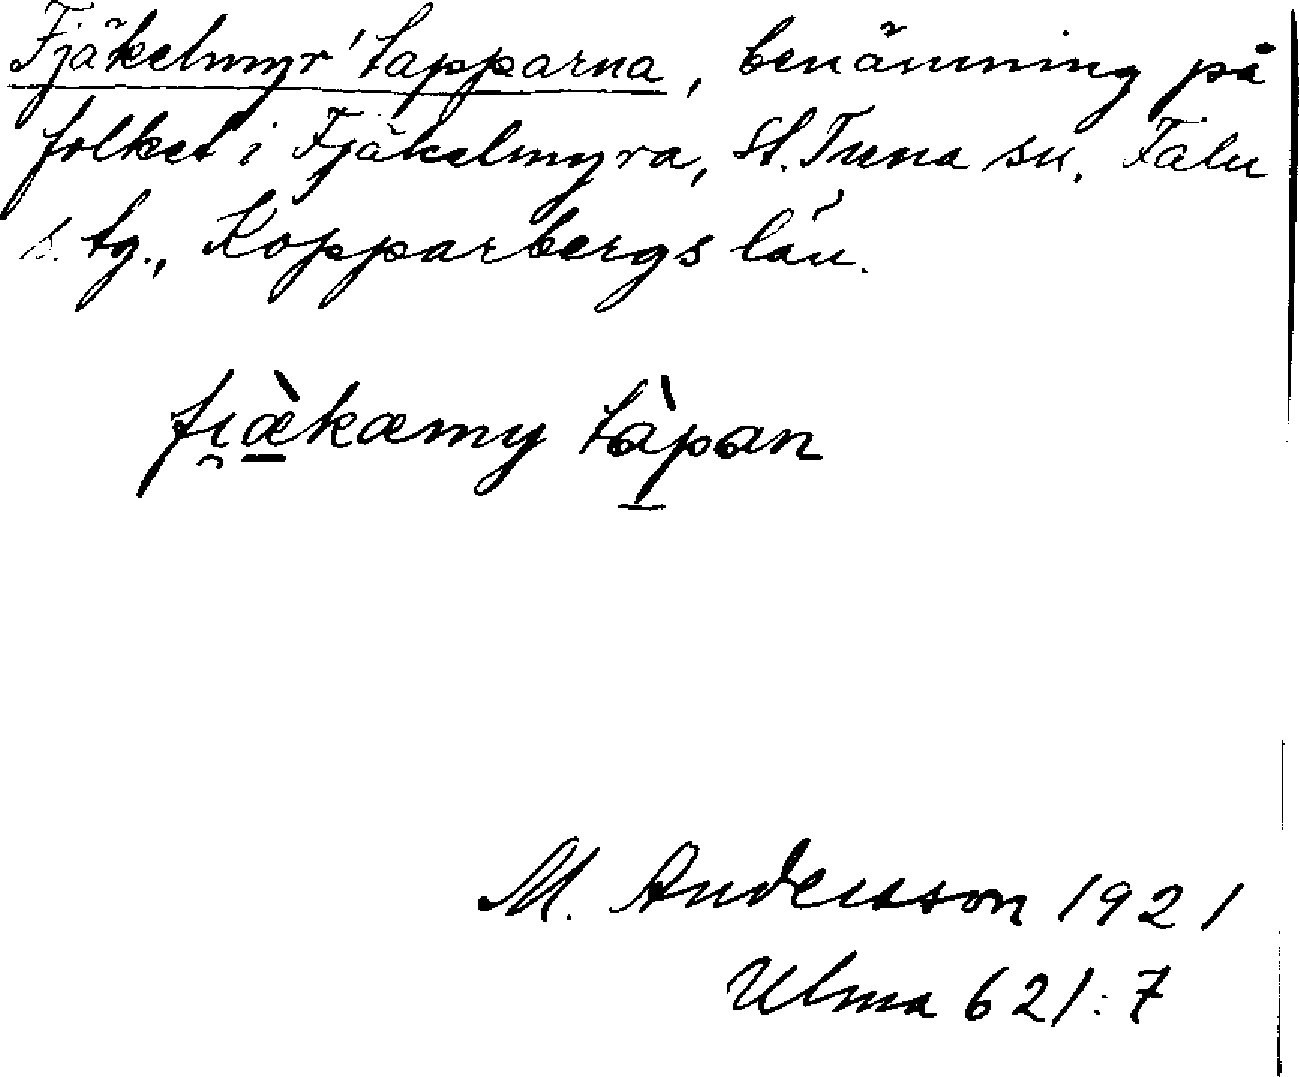 Fjäkelmyr'lapparna, benämning på
folket i Fjäkelmyra, St. Tuna sn. Falu
s. tg., Kopparbergs län.
fi̯æ̀kæmy làpan
M. Andersson 1921
Ulma 621:7